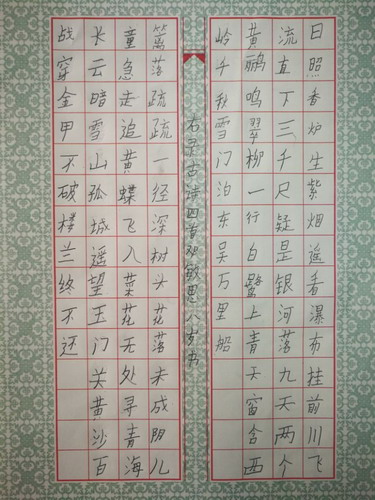 日照香炉生紫烟遥看瀑布挂前川飞
流直下三千尺疑是银河落九天两个
黄鹂鸣翠柳一行白鹭上青天窗含西
岭千秋雪门泊东吴万里船
右录古诗四首邓敏思八岁书
篱落疏疏一径深树头花落未成阴儿
童急走追黄蝶飞入菜花无处寻青海
长云暗雪山孤城遥望玉门关黄沙百
战穿金甲不破楼兰终不还